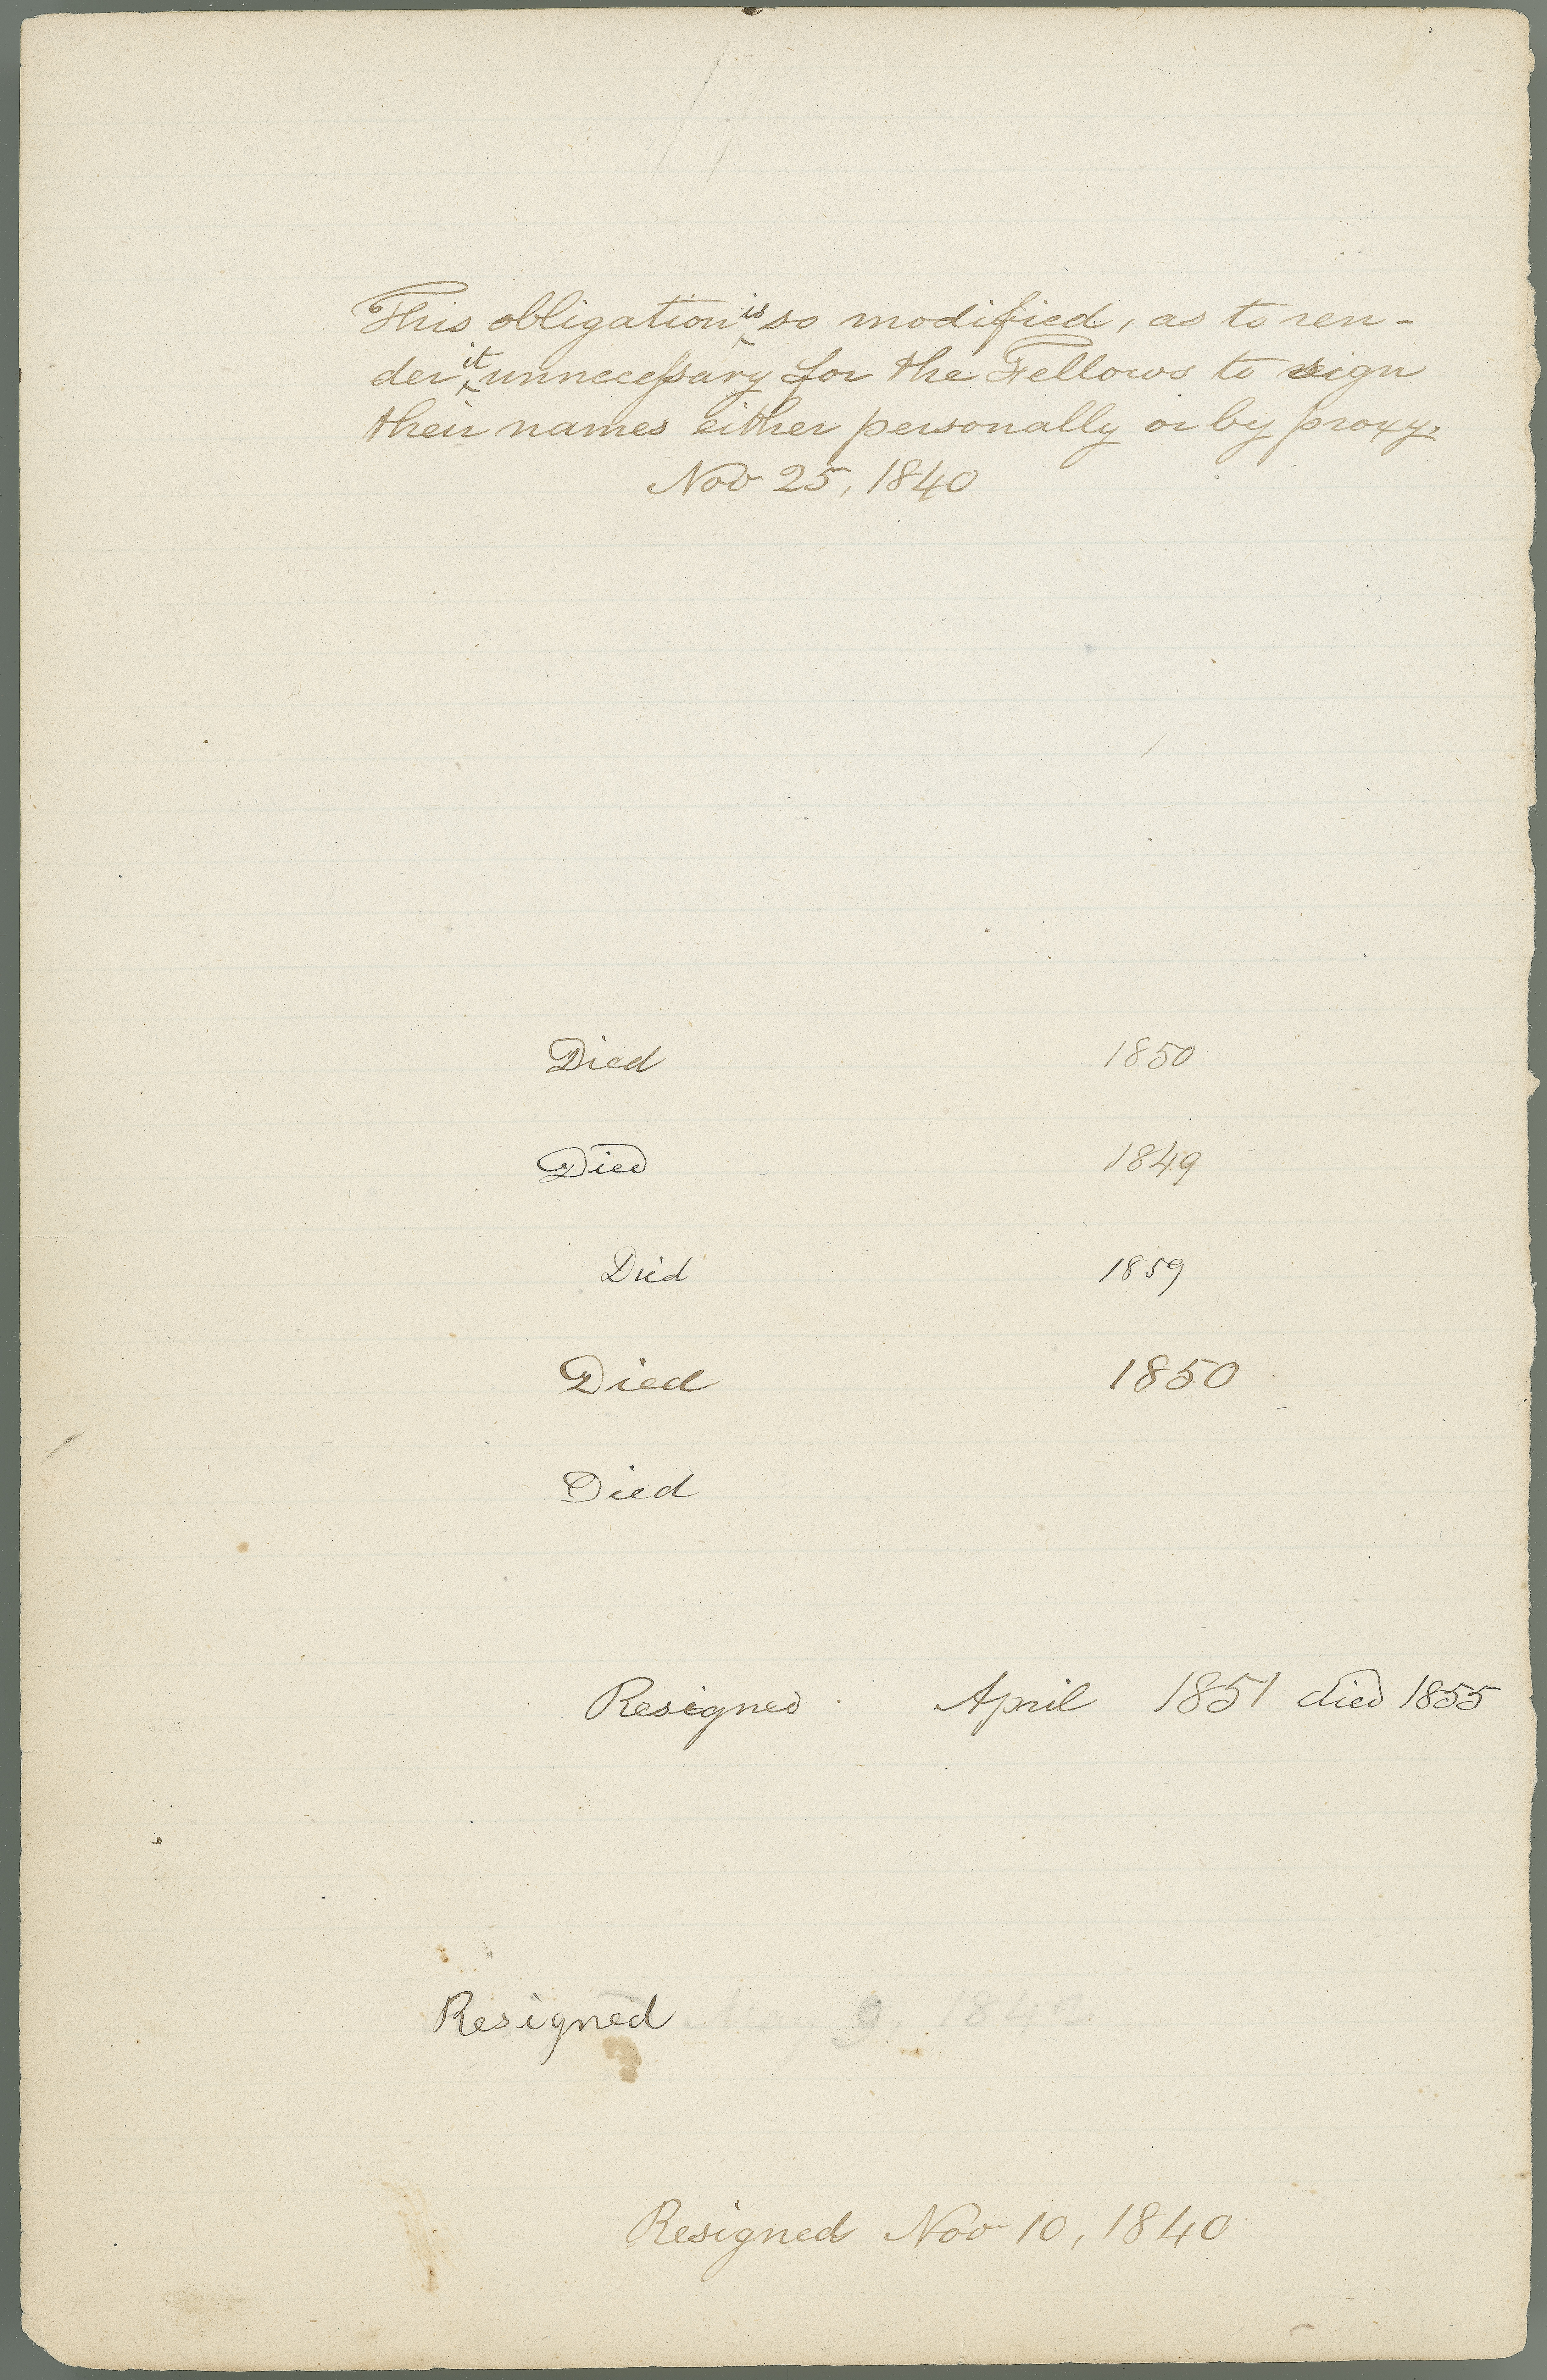 This obligation is so modified, as to ren-
der it unnecessary for the Fellows to sign
their names either personally or by proxy.
Nov 25, 1840
Died 1850
Died 1849
Died 1859
Died 1850
Died
Resigned April 1851 died 1855
Resigned May 9, 1842
Resigned Nov 10, 1840